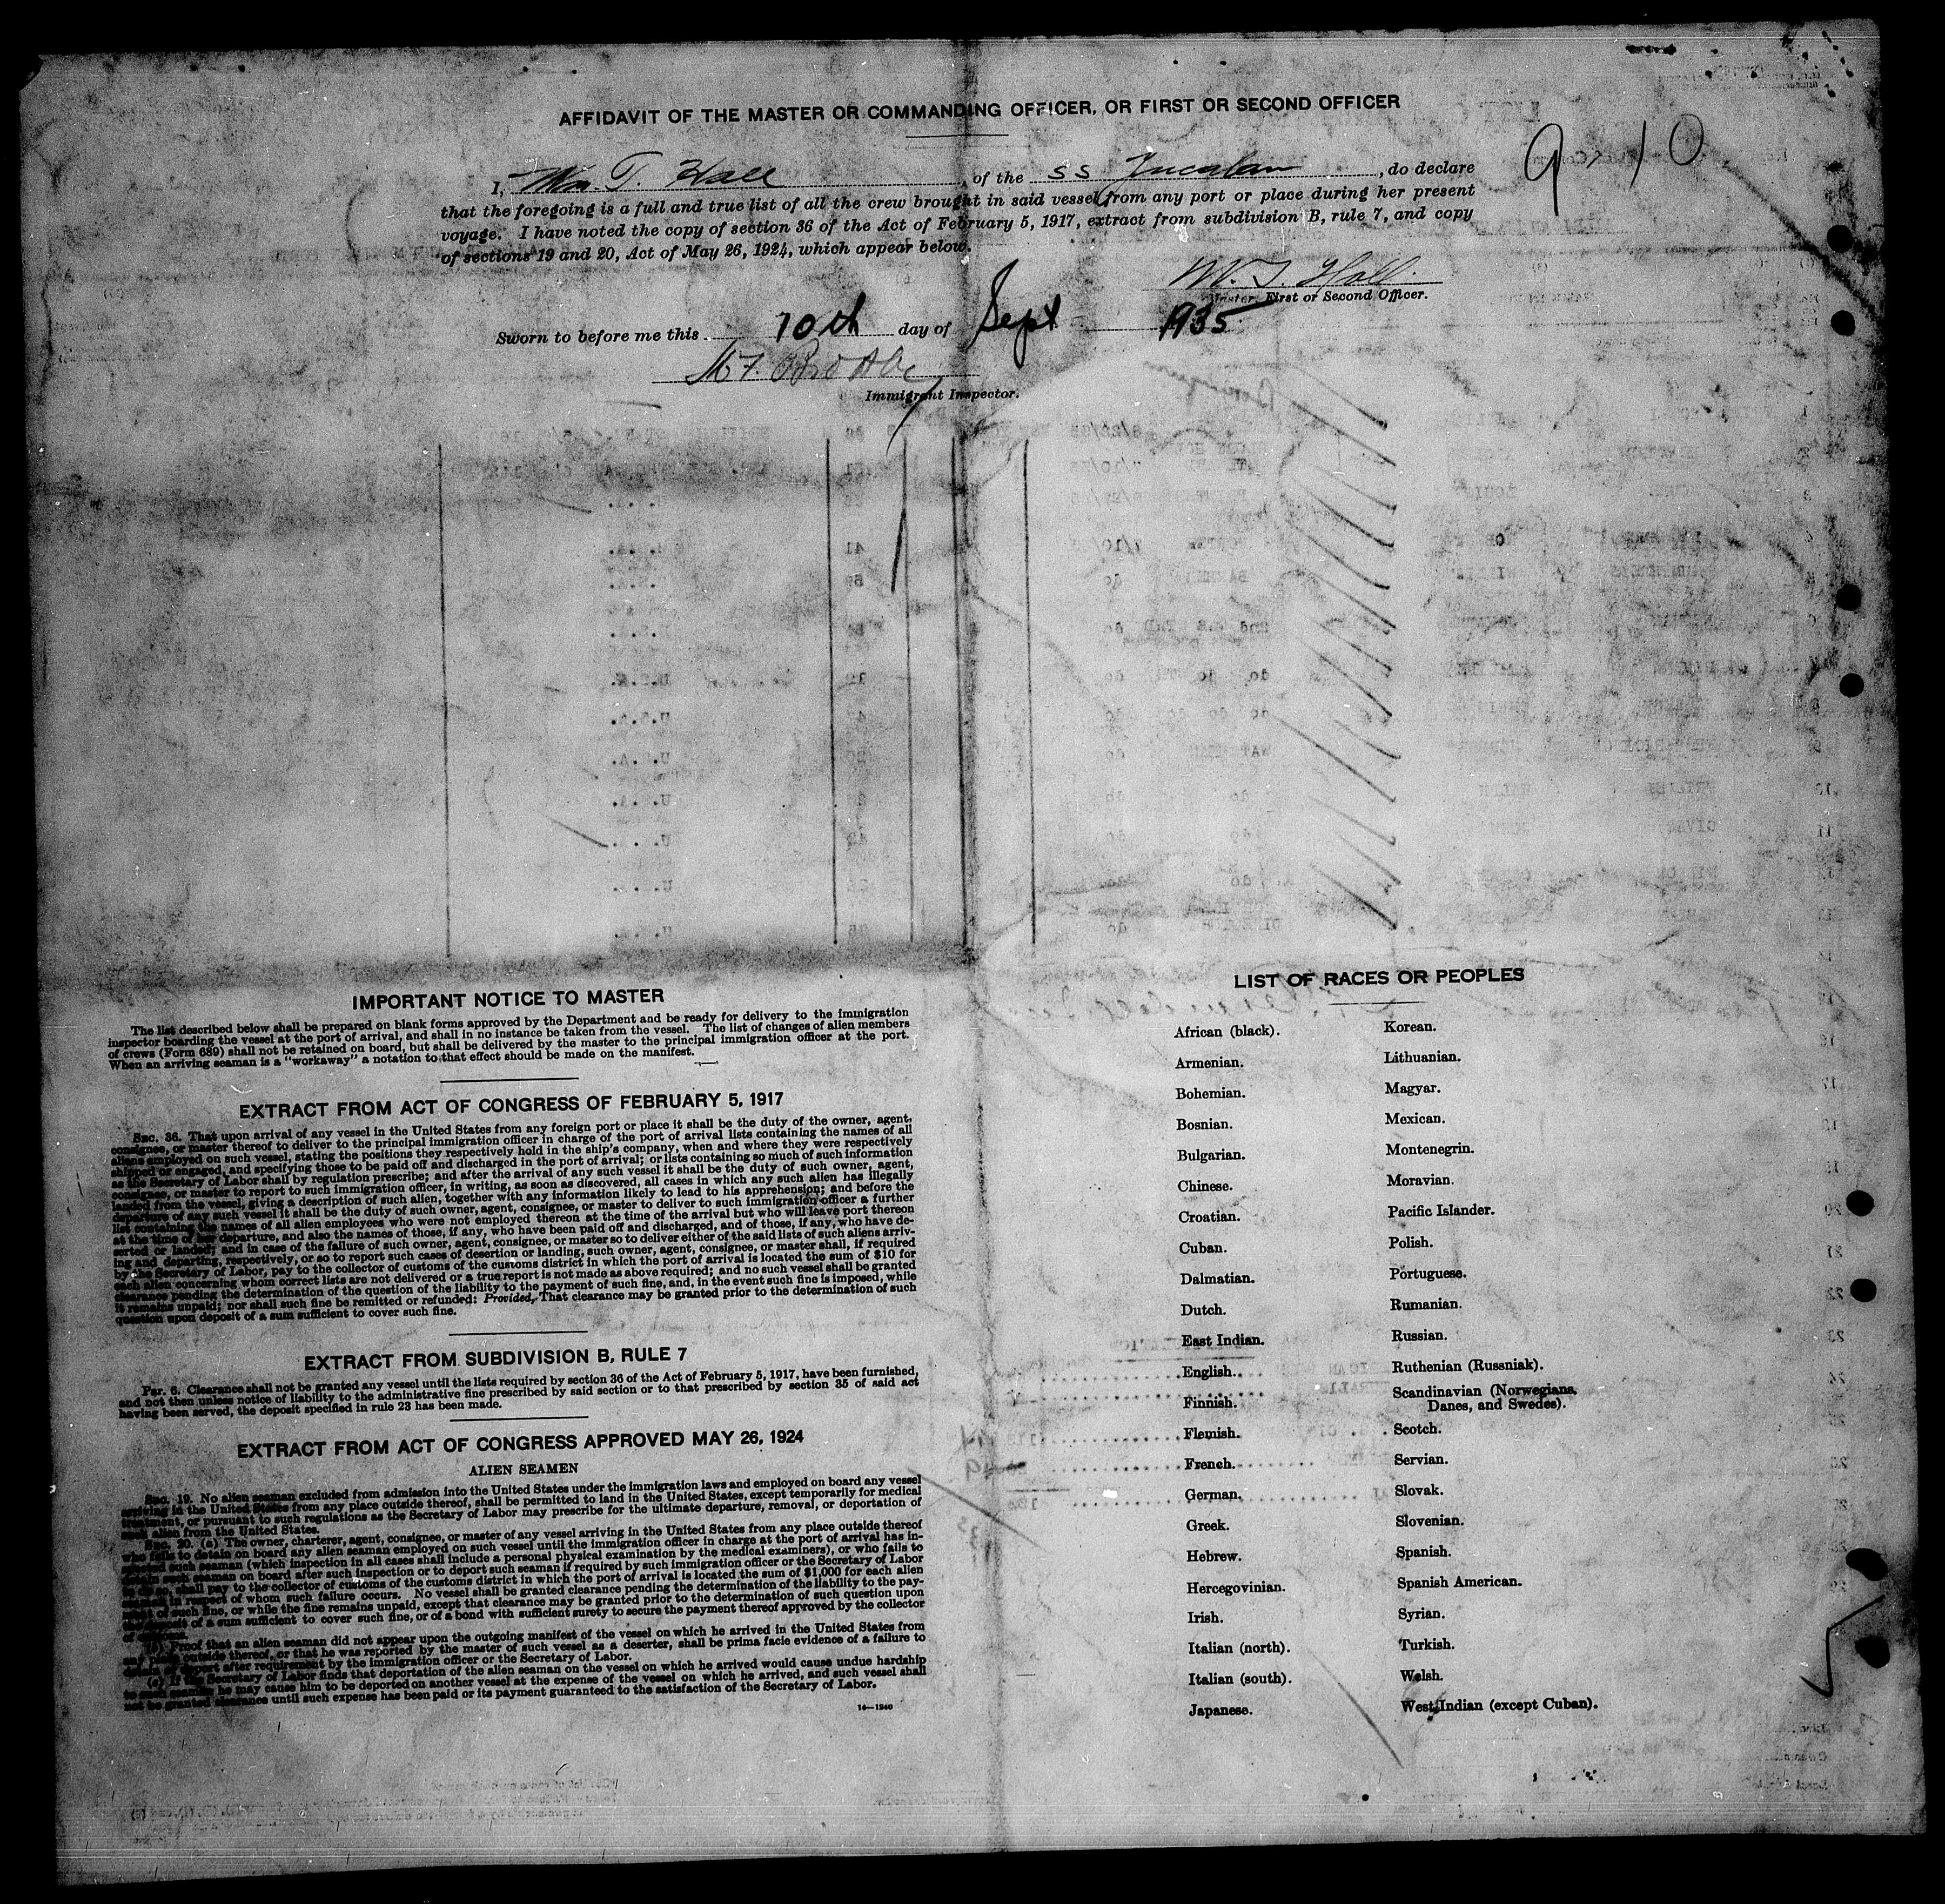 AFFIDAVIT OF THE MASTER OR COMMANDING OFFICER, OR FIRST OR SECOND OFFICER
9-10
I, Wm. T. Hall, of the SS Yucatan, do declare
that the foregoing is a full and true list of all the crew brought in said vessel from any port or place during her present
voyage. I have noted the copy of section 36 of the Act of February 5, 1917, extract from subdivision B, rule 7, and copy
of sections 19 and 20, Act of May 26, 1924, which appear below.
W. T. Hall
Master, First or Second Officer.
Sworn to before me this 10th day of Sept 1935
Immigrant Inspector.
IMPORTANT NOTICE TO MASTER
The list described below shall be prepared on blank forms approved by the Department and be ready for delivery to the immigration
inspector boarding the vessel at the port of arrival, and shall in no instance be taken from the vessel. The list of changes of alien members
of crews (Form 689) shall not be retained on board, but shall be delivered by the master to the principal immigration officer at the port.
When an arriving seaman is a "workaway" a notation to that effect should be made on the manifest.
EXTRACT FROM ACT OF CONGRESS OF FEBRUARY 5, 1917
Sec. 36. That upon arrival of any vessel in the United States from any foreign port or place it shall be the duty of the owner, agent,
consignee, or master thereof to deliver to the principal immigration officer in charge of the port of arrival lists containing the names of all
aliens employed on such vessel, stating the positions they respectively hold in the ship's company, when and where they were respectively
shipped or engaged, and specifying those to be paid off and discharged in the port of arrival; or lists containing so much of such information
as the Secretary of Labor shall by regulation prescribe; and after the arrival of any such vessel it shall be the duty of such owner, agent,
consignee, or master to report to such immigration officer, in writing, as soon as discovered, all cases in which any such alien has illegally
landed from the vessel, giving a description of such alien, together with any information likely to lead to his apprehension; and before the
departure of any such vessel it shall be the duty of such owner, agent, consignee, or master to deliver to such immigration officer a further
list containing the names of all alien employees who were not employed thereon at the time of the arrival but who will leave port thereon
at the time of her departure, and also the names of those, if any, who have been paid off and discharged, and of those, if any, who have de-
serted or landed; and in case of the failure of such owner, agent, consignee, or master so to deliver either of the said lists of such aliens arriv-
ing and departing, respectively, or so to report such cases of desertion or landing, such owner, agent, consignee, or master shall, if required
by the Secretary of Labor, pay to the collector of customs of the customs district in which the port of arrival is located the sum of $10 for
each alien concerning whom correct lists are not delivered or a true report is not made as above required; and no such vessel shall be granted
clearance pending the determination of the question of the liability to the payment of such fine, and, in the event such fine is imposed, while
it remains unpaid; nor shall such fine be remitted or refunded: Provided, That clearance may be granted prior to the determination of such
question upon deposit of a sum sufficient to cover such fine.
EXTRACT FROM SUBDIVISION B, RULE 7
Par. 6. Clearance shall not be granted any vessel until the lists required by section 36 of the Act of February 5, 1917, have been furnished,
and not then unless notice of liability to the administrative fine prescribed by said section or to that prescribed by section 35 of said act
having been served, the deposit specified in rule 23 has been made.
EXTRACT FROM ACT OF CONGRESS APPROVED MAY 26, 1924
ALIEN SEAMEN
Sec. 19. No alien seaman excluded from admission into the United States under the immigration laws and employed on board any vessel
arriving in the United States from any place outside thereof, shall be permitted to land in the United States, except temporarily for medical
treatment, or pursuant to such regulations as the Secretary of Labor may prescribe for the ultimate departure, removal, or deportation of
such alien from the United States.
Sec. 20. (a) The owner, charterer, agent, consignee, or master of any vessel arriving in the United States from any place outside thereof
who fails to detain on board any alien seaman employed on such vessel until the immigration officer in charge at the port of arrival has in-
spected such seaman (which inspection in all cases shall include a personal physical examination by the medical examiners), or who fails to
detain such seaman on board after such inspection or to deport such seaman if required by such immigration officer or the Secretary of Labor
to do so, shall pay to the collector of customs of the customs district in which the port of arrival is located the sum of $1,000 for each alien
seaman in respect of whom such failure occurs. No vessel shall be granted clearance pending the determination of the liability to the pay-
ment of such fine, or while the fine remains unpaid, except that clearance may be granted prior to the determination of such question upon
deposit of a sum sufficient to cover such fine, or of a bond with sufficient surety to secure the payment thereof approved by the collector
of customs.
(b) Proof that an alien seaman did not appear upon the outgoing manifest of the vessel on which he arrived in the United States from
any place outside thereof, or that he was reported by the master of such vessel as a deserter, shall be prima facie evidence of a failure to
detain or deport after requirement by the immigration officer or the Secretary of Labor.
(c) If the Secretary of Labor finds that deportation of the alien seaman on the vessel on which he arrived would cause undue hardship
to such seaman he may cause him to be deported on another vessel at the expense of the vessel on which he arrived, and such vessel shall
not be granted clearance until such expense has been paid or its payment guaranteed to the satisfaction of the Secretary of Labor.
14—1240
LIST OF RACES OR PEOPLES
African (black).
Armenian.
Bohemian.
Bosnian.
Bulgarian.
Chinese.
Croatian.
Cuban.
Dalmatian.
Dutch.
East Indian.
English.
Finnish.
Flemish.
French.
German.
Greek.
Hebrew.
Hercegovinian.
Irish.
Italian (north).
Italian (south).
Japanese.
Korean.
Lithuanian.
Magyar.
Mexican.
Montenegrin.
Moravian.
Pacific Islander.
Polish.
Portuguese.
Rumanian.
Russian.
Ruthenian (Russniak).
Scandinavian (Norwegians,
Danes, and Swedes).
Scotch.
Servian.
Slovak.
Slovenian.
Spanish.
Spanish American.
Syrian.
Turkish.
Welsh.
West Indian (except Cuban).